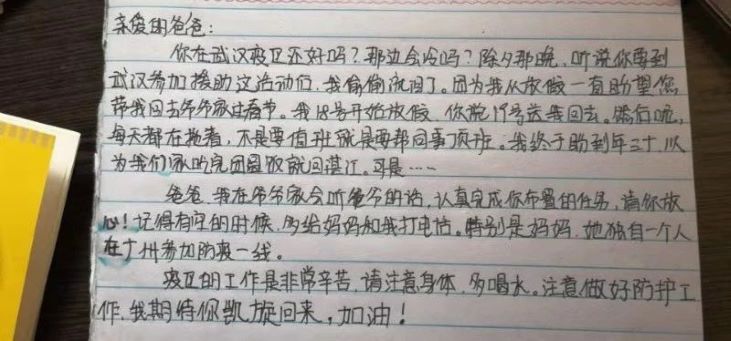 亲爱的爸爸：
你在武汉疫区还好吗？那边会冷吗？除夕那晚，听说你要到
武汉参加援助这活动们，我偷偷流泪了。因为我从放假一直盼望您
带我回去爷爷家过春节。我18号开始放假，你说19号送我回去。然后呢，
每天都在拖着，不是要值班就是要帮同事顶班。我终于盼到年三十，以
为我们家吃完团圆饭就回湛江。可是……
爸爸，我在爷爷家会听爷爷的话，认真完成你布置的任务，请你放
心！记得有空的时候，多给妈妈和我打电话。特别是妈妈，她独自一个人
在广州参加防疫一线。
疫区的工作是非常辛苦，请注意身体，多喝水。注意做好防护工
作，我期待你凯旋回来，加油！